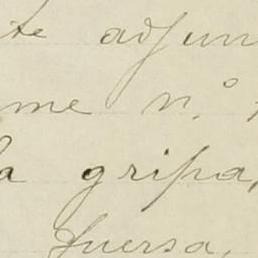 te adjun
me n.º
a gripa,
fuersa,